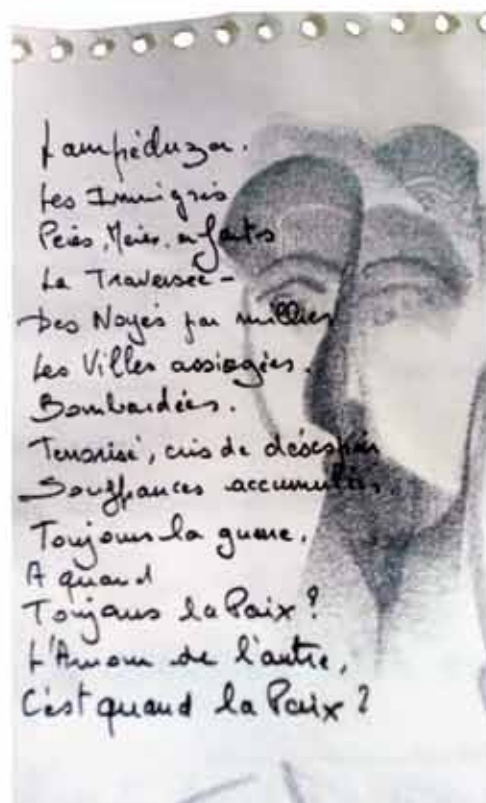 Lampéduza.
Les Immigrés
Pères, Mères, enfants
La Traversée -
Des Noyés par milliers
Les Villes assiégées.
Bombardées.
Terrorisé, cris de désespoir
Souffrances accumulées.
Toujours la guerre.
A quand
Toujours la Paix ?
L'Amour de l'autre,
C'est quand la Paix ?